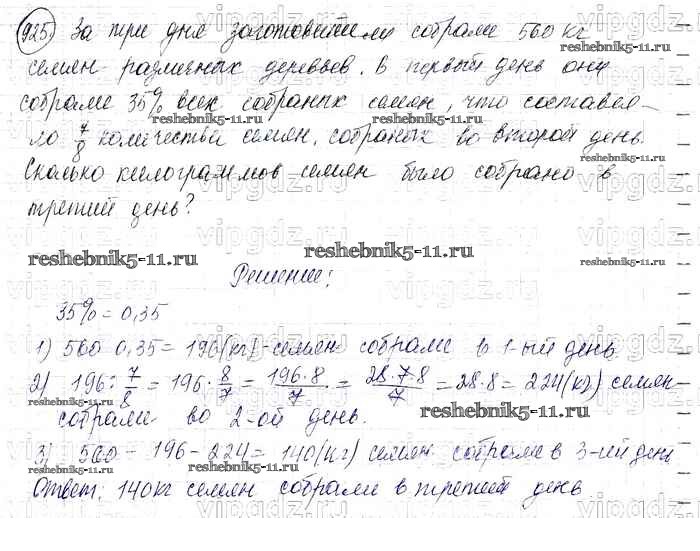 925) За три дня заготовители собрали 560 кг
семян различных деревьев. В первый день они
собрали 35% всех собраных семян, что составля-
ло 7/8 количества семян, собраных во второй день.
Сколько килограммов семян было собрано в
третий день?
reshebnik5-11.ru
Решение:
35% = 0,35
1) 560 0,35 = 196 (кг) - семян собрали в 1-ый день
2) 196 : 7/8 = 196 · 8/7 = 196·8/7 = 28·7·8/7 = 28·8 = 224 (кг) семян
собрали во 2-ой день.
3) 560 - 196 - 224 = 140 (кг) семян собрали в 3-ий день
Ответ: 140 кг семян собрали в третий день
vipgdz.ru